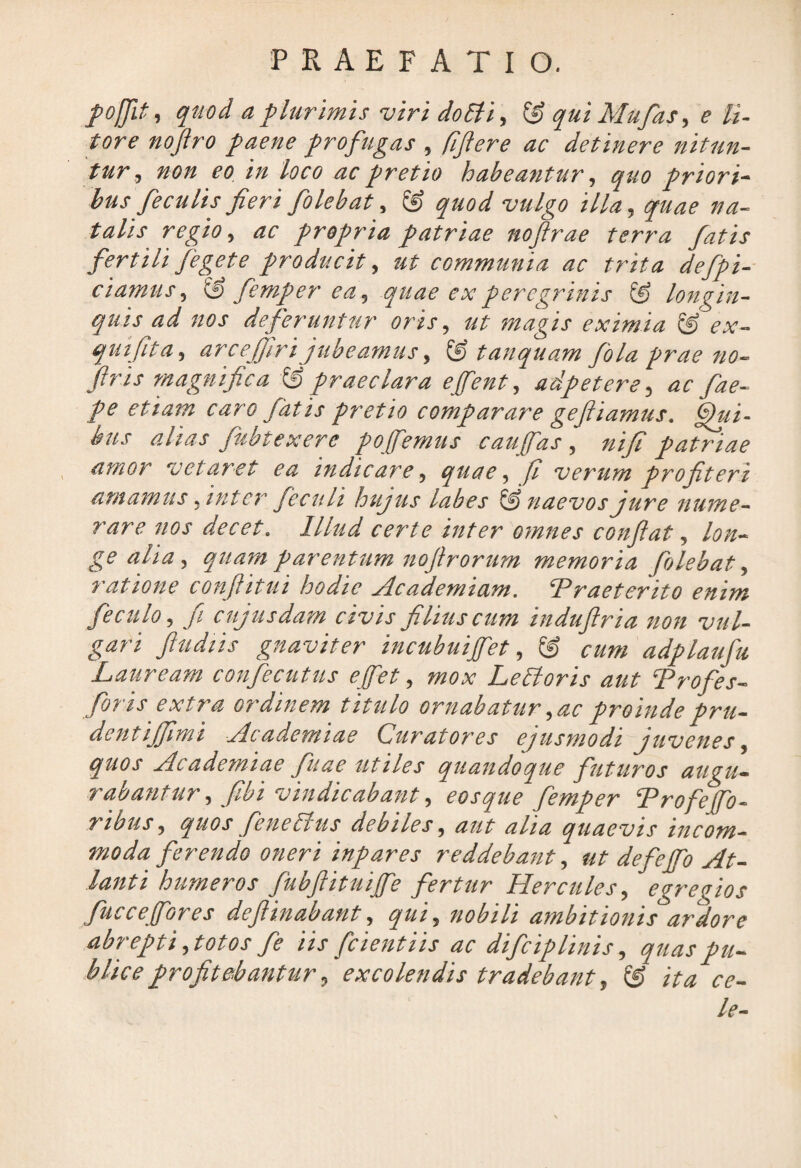 PRAEFATIO.
poſſit, quod a plurimis viri docti, & qui Muſas, e li-
tore noſtro paene profugas, ſiſtere ac detinere nitun-
tur, non eo in loco ac pretio habeantur, quo priori-
bus ſeculis fieri ſolebat, & quod vulgo illa, quae na-
talis regio, ac propria patriae noſtrae terra ſatis
fertili ſegete producit, ut communia ac trita deſpi-
ciamus, & ſemper ea, quae ex peregrinis & longin-
quis ad nos deferuntur oris, ut magis eximia & ex-
quiſita, arceſſiri jubeamus, & tanquam ſola prae no-
ſtris magnifica & praeclara eſſent, adpetere, ac ſae-
pe etiam caro ſatis pretio comparare geſtiamus. Qui-
bus alias ſubtexere poſſemus cauſſas, niſi patriae
amor vetaret ea indicare, quae, ſi verum profiteri
amamus, inter ſeculi hujus labes & naevos jure nume-
rare nos decet. Illud certe inter omnes conſtat, lon-
ge alia, quam parentum noſtrorum memoria ſolebat,
ratione conſtitui hodie Academiam. Praeterito enim
ſeculo, ſi cujusdam civis filius cum induſtria non vul-
gari ſtudiis gnaviter incubuiſſet, & cum adplauſu
Lauream conſecutus eſſet, mox Lectoris aut Profes-
ſoris extra ordinem titulo ornabatur, ac proinde pru-
dentiſſimi Academiae Curatores ejusmodi juvenes,
quos Academiae ſuae utiles quandoque futuros augu-
rabantur, ſibi vindicabant, eosque ſemper Profeſſo-
ribus, quos ſenectus debiles, aut alia quaevis incom-
moda ferendo oneri inpares reddebant, ut defeſſo At-
lanti humeros ſubſtituiſſe fertur Hercules, egregios
ſucceſſores deſtinabant, qui, nobili ambitionis ardore
abrepti, totos ſe iis ſcientiis ac diſciplinis, quas pu-
blice profitebantur, excolendis tradebant, & ita ce-
le-